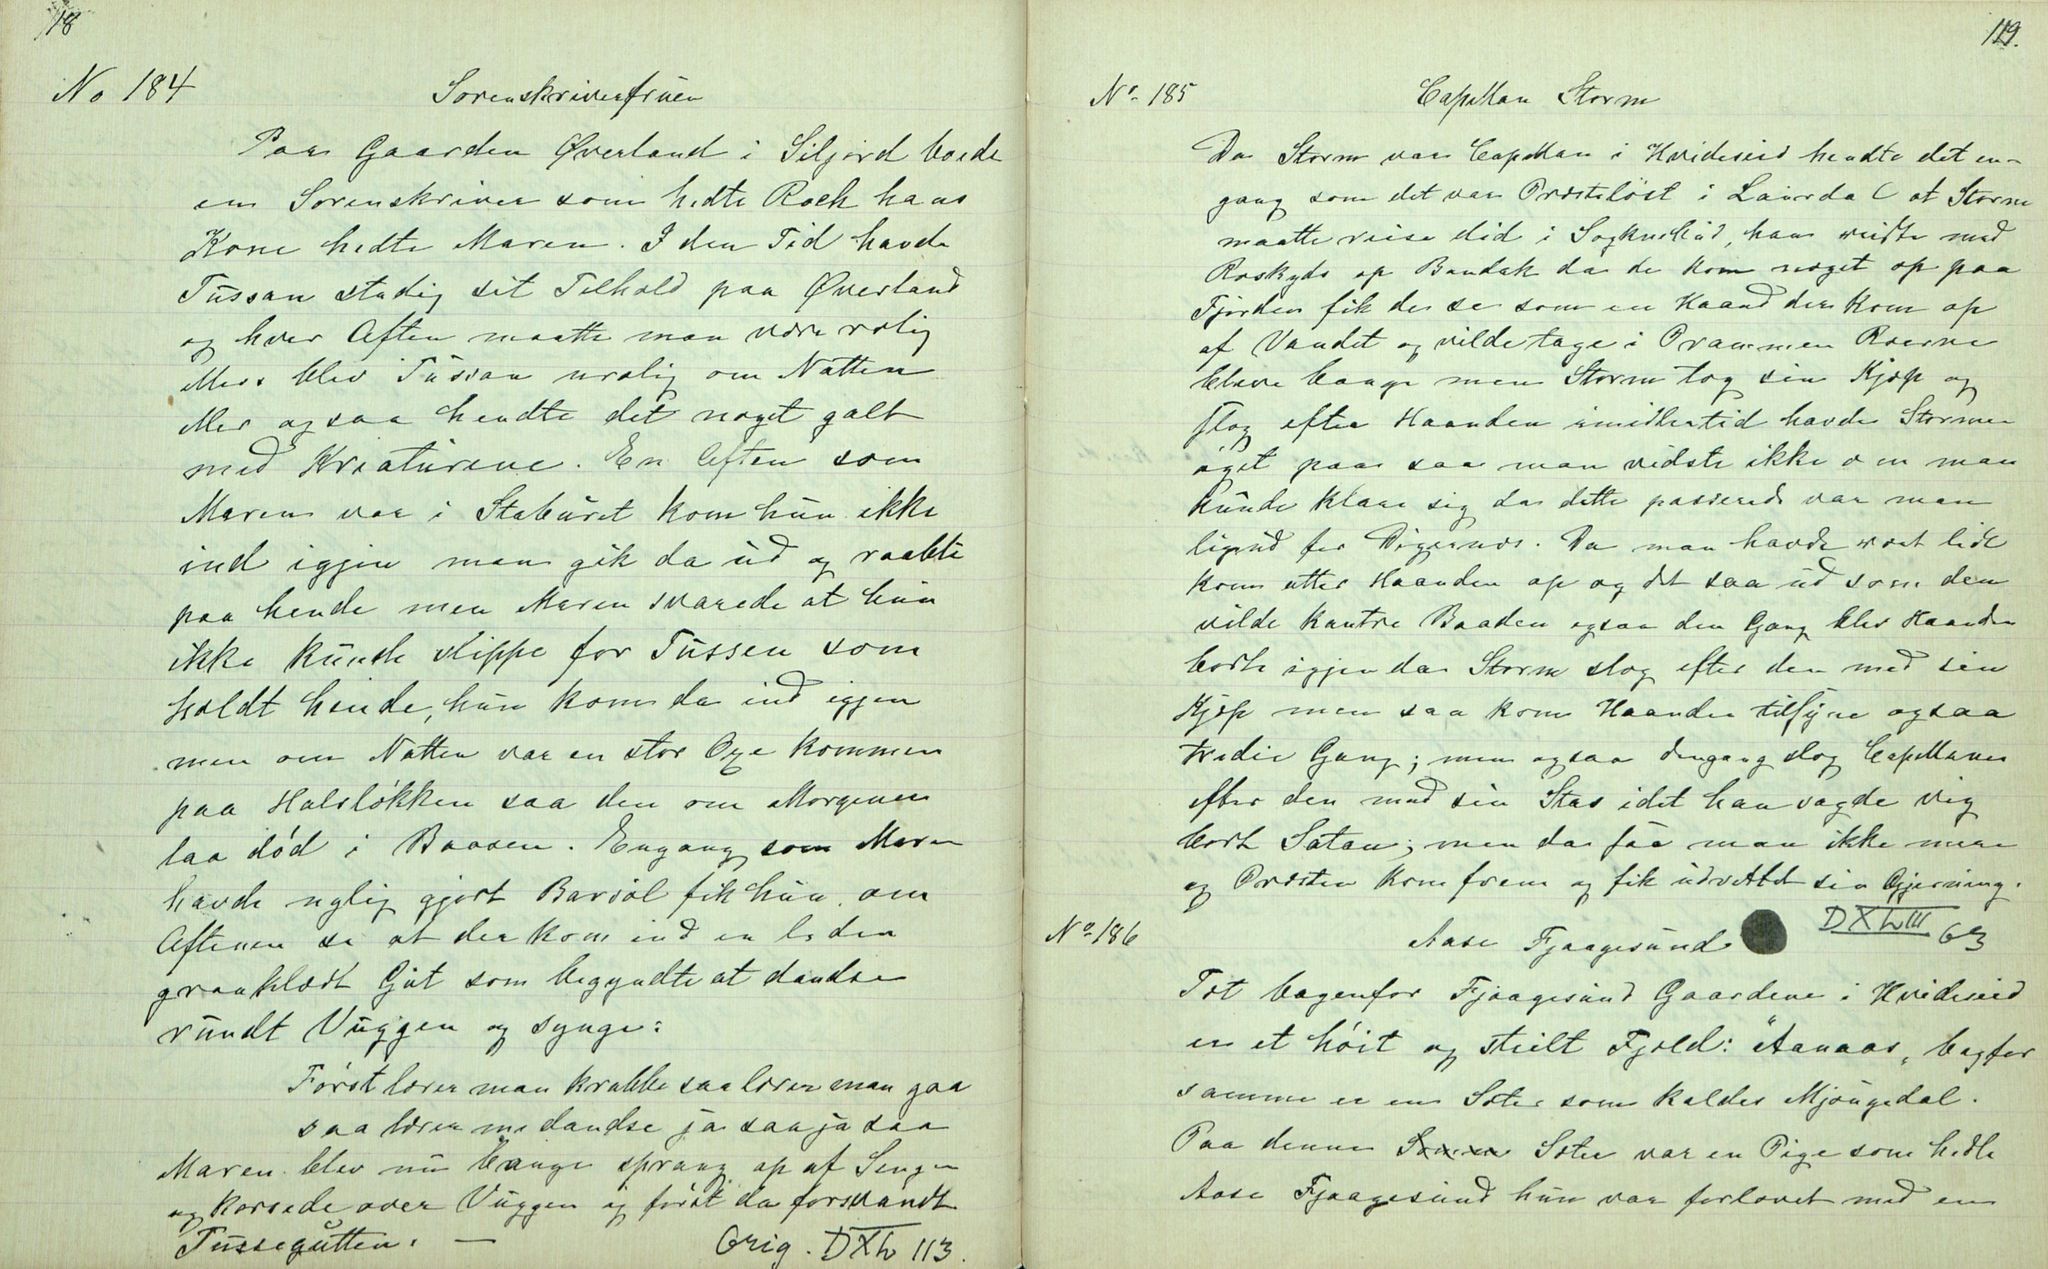 18
No 184
Sorenskriverfruen
Paa Gaarden Øverland i Siljord boede
en Sorenskriver som hedte Roch hans
Kone hedte Maren. I den Tid havde
Tussan stadig sit Tilhold paa Øverland
og hver Aften maatte man være rolig
ellers blev Tussan urolig om Natten
eller ogsaa hendte det noget galt
med Kreaturene. En Aften som
Maren var i Staburet kom hun ikke
ind igjen man gik da ud og raabte
paa hende men Maren svarede at hun
ikke kunde slippe for Tussen som
holdt hende, hun kom da ind igjen
men om Natten var en stor Oxe kommen
paa Halsløkken saa den om Morgenen
laa død i Baasen. Engang som Maren
havde nylig gjort Barsøl fik hun om
Aftenen se at der kom ind en liden
graaklædt Gut som begyndte at dandse
rundt Vuggen og synge:
Først lærer man krabbe saa lærer man gaa
saa lærer me dandse ja saa ja saa
Maren blev nu bange sprang op af Sengen
og korsede over Vuggen og først da forsvandt
Tussegutten. —
Orig. DXL 113.
119.
No 185
Capellan Storm
Da Storm var Capellan i Hvideseid hendte det en-
gang som det var Presteløst i Laurdal at Storm
maatte reise did i Sognebud, han reiste med
Roskyds op Bandak da de kom noget op paa
Fjorden fik de se som en Haand der kom op
af Vandet og vilde tage i Prammen Roerne
bleve bange men Storm tog sin Kjæp og
slog efter Haanden imidlertid havde Stormen
øget paa saa man vidste ikke om man
kunde klare sig da dette passerede var man
ligeud for Digernes. Da man havde roet lidt
kom atter Haanden op og det saa ud som den
vilde kantre Baaden ogsaa den Gang blev Haanden
borte igjen da Storm slog efter den med sin
Kjæp men saa kom Haanden tilsyne ogsaa
tredie Gang; men ogsaa dengang slog Capellanen
efter den med sin Stav idet han sagde vig
bort Satan; men da saa man ikke mere
og Presten kom frem og fik udrettet sin Gjerning.
DXLIII 63
No 186
Aase Fjaagesund
Tæt bagenfor Fjaagesund Gaardene i Hvideseid
er et høit og steilt Fjeld: "Aanaas, bagfor
samme er en Sæter som kaldes Mjougedal.
Paa denne Sæter var en Pige som hedte
Aase Fjaagesund hun var forlovet med en